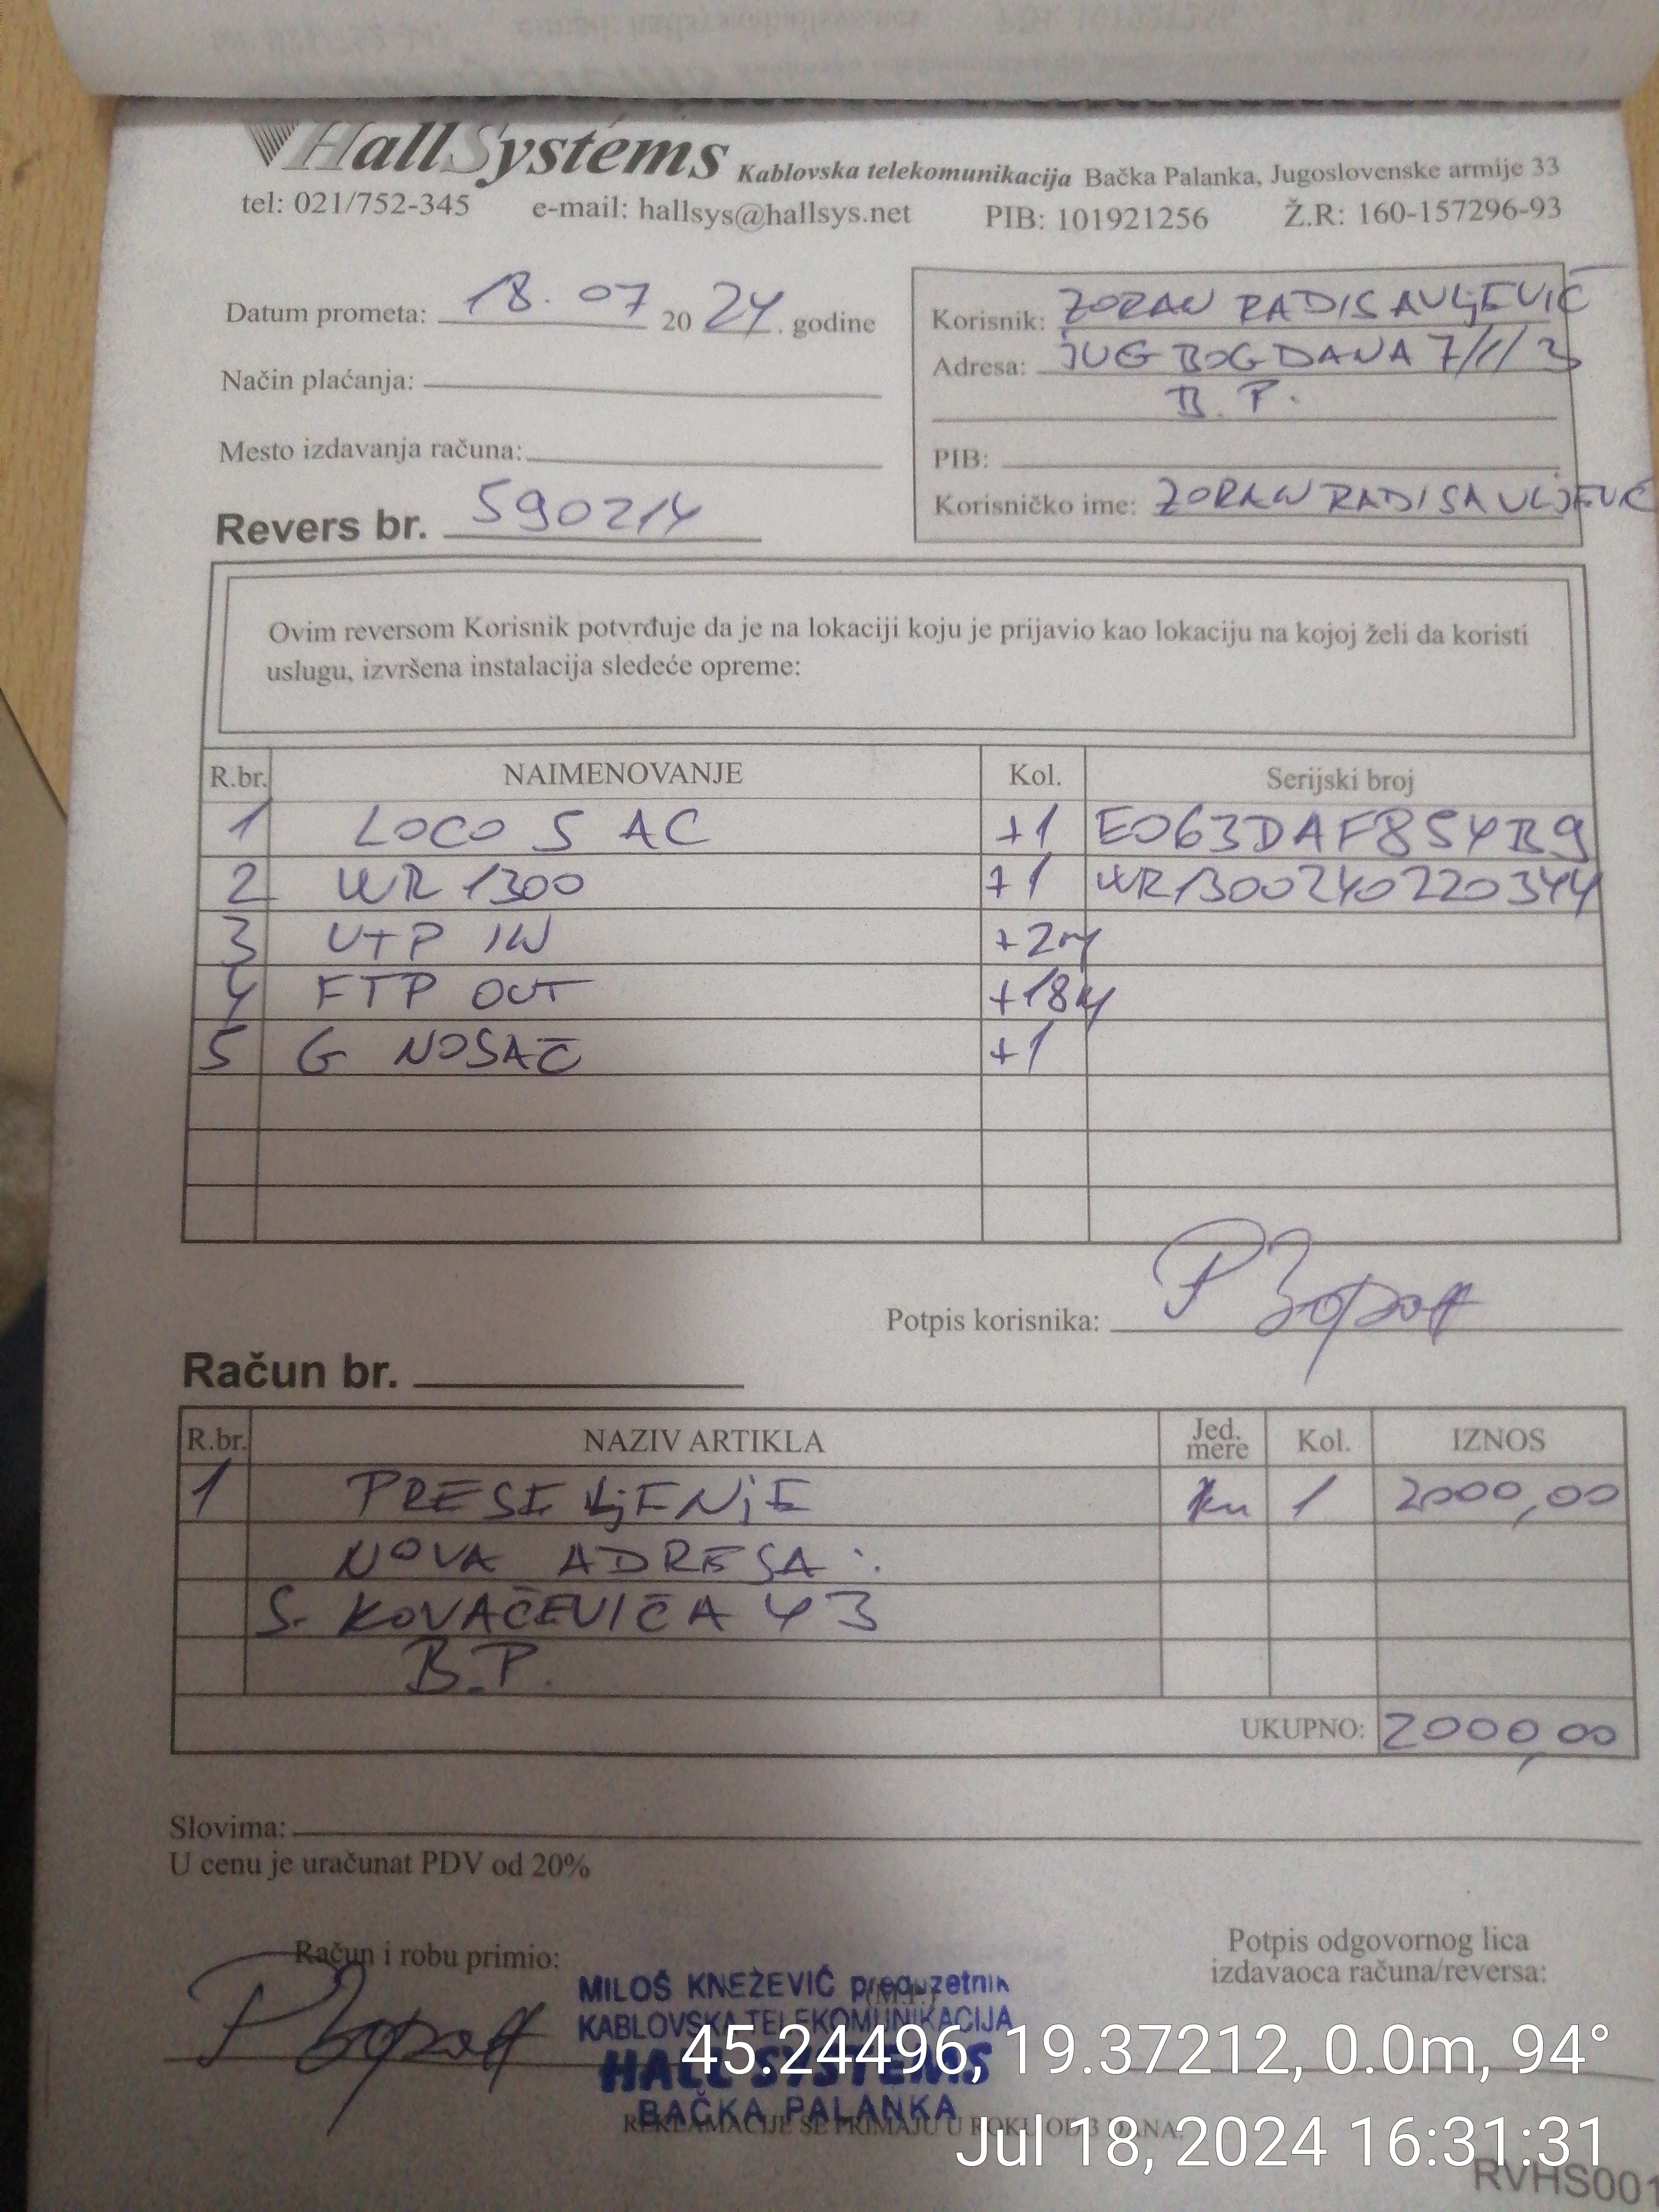 HallSystems Kablovska telekomunikacija Bačka Palanka, Jugoslovenske armije 33
tel: 021/752-345 e-mail: hallsys@hallsys.net PIB: 101921256 Ž.R: 160-157296-93
Datum prometa: 18. 07 2024. godine
Način plaćanja:
Mesto izdavanja računa:
Revers br. 590214
Korisnik: ZORAN RADISAVLjEVIĆ
Adresa: JUG BOGDANA 7/1/3
B.P.
PIB:
Korisničko ime: ZORAN RADISAVLJEVIĆ
Ovim reversom Korisnik potvrđuje da je na lokaciji koju je prijavio kao lokaciju na kojoj želi da koristi
uslugu, izvršena instalacija sledeće opreme:
R.br. NAIMENOVANJE Kol. Serijski broj
1 LOCO 5 AC +1 E063DAF854B9
2 WR 1300 +1 WR1300240220344
3 UTP IN +2m
4 FTP OUT +18m
5 G NOSAČ +1
Potpis korisnika: Р Зоран
Račun br.
R.br. NAZIV ARTIKLA Jed. mere Kol. IZNOS
1 PRESELjENjE 1 2000,00
NOVA ADRESA:
S. KOVAČEVIĆA 43
B.P.
UKUPNO: 2000,00
Slovima:
U cenu je uračunat PDV od 20%
Račun i robu primio:
Р Зоран
(M.P.)
MILOŠ KNEŽEVIĆ preduzetnik
KABLOVSKA TELEKOMUNIKACIJA
HALL SYSTEMS
BAČKA PALANKA
Potpis odgovornog lica
izdavaoca računa/reversa:
REKLAMACIJE SE PRIMAJU U ROKU OD 3 DANA.
45.24496, 19.37212, 0.0m, 94°
Jul 18, 2024 16:31:31
RVHS001